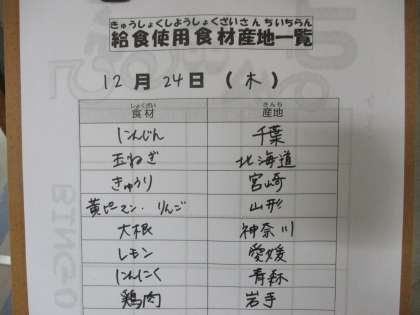 きゅうしょくしようしょくざいさんちいちらん
給食使用食材産地一覧
12月24日(木)
しょくざい さんち
食材 産地
にんじん 千葉
玉ねぎ 北海道
きゅうり 宮崎
黄ピーマン・りんご 山形
大根 神奈川
レモン 愛媛
にんにく 青森
鶏肉 岩手
BINGO